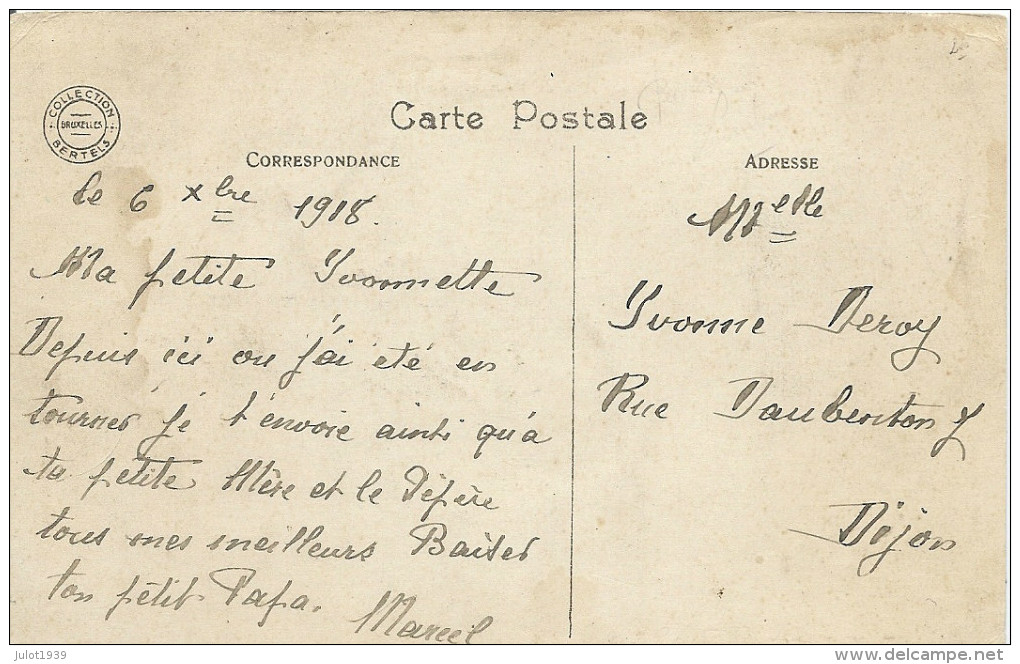 COLLECTION
BRUXELLES
BERTELS
Carte Postale
CORRESPONDANCE
le 6 xbre 1918.
Ma petite Yvonnette
Depuis ici ou j'ai été en
tourner je t'envoie ainsi qu'a
ta petite Mère et le Pépère
tous mes meilleurs Baiser
ton petit Papa.
Marcel
ADRESSE
Melle
Yvonne Deroy
Rue Daubenton 7
Dijon
julot1939